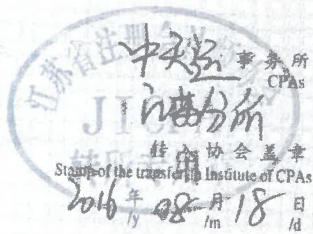 江苏省注册会
中天运 事务所
CPAs
JI
江苏分所
转入协会盖章
Stamp of the transfer-in Institute of CPAs
2016 年 08 月 18 日
/y /m /d